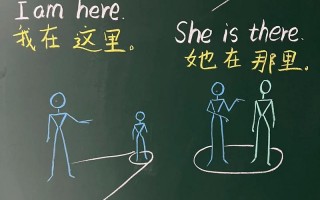 I am here.
我在 这里。
She is there.
她在 那里.